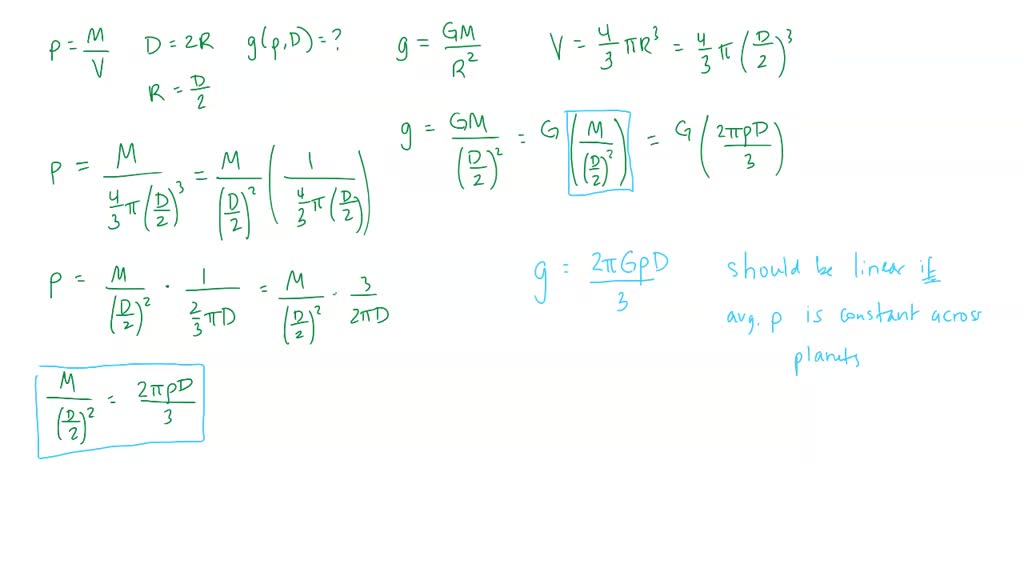 ρ = M/V D = 2R g(ρ,D) = ? g = GM/R² V = 4/3 πR³ = 4/3 π(D/2)³
R = D/2
g = GM/(D/2)² = G(M/(D/2)²) = G(2πρD/3)
ρ = M/(4/3 π(D/2)³) = M/(D/2)² (1/(4/3 π(D/2)))
ρ = M/(D/2)² · 1/(2/3 πD) = M/(D/2)² · 3/2πD
g = 2πGρD/3
should be linear if
avg. ρ is constant across
planets
M/(D/2)² = 2πρD/3